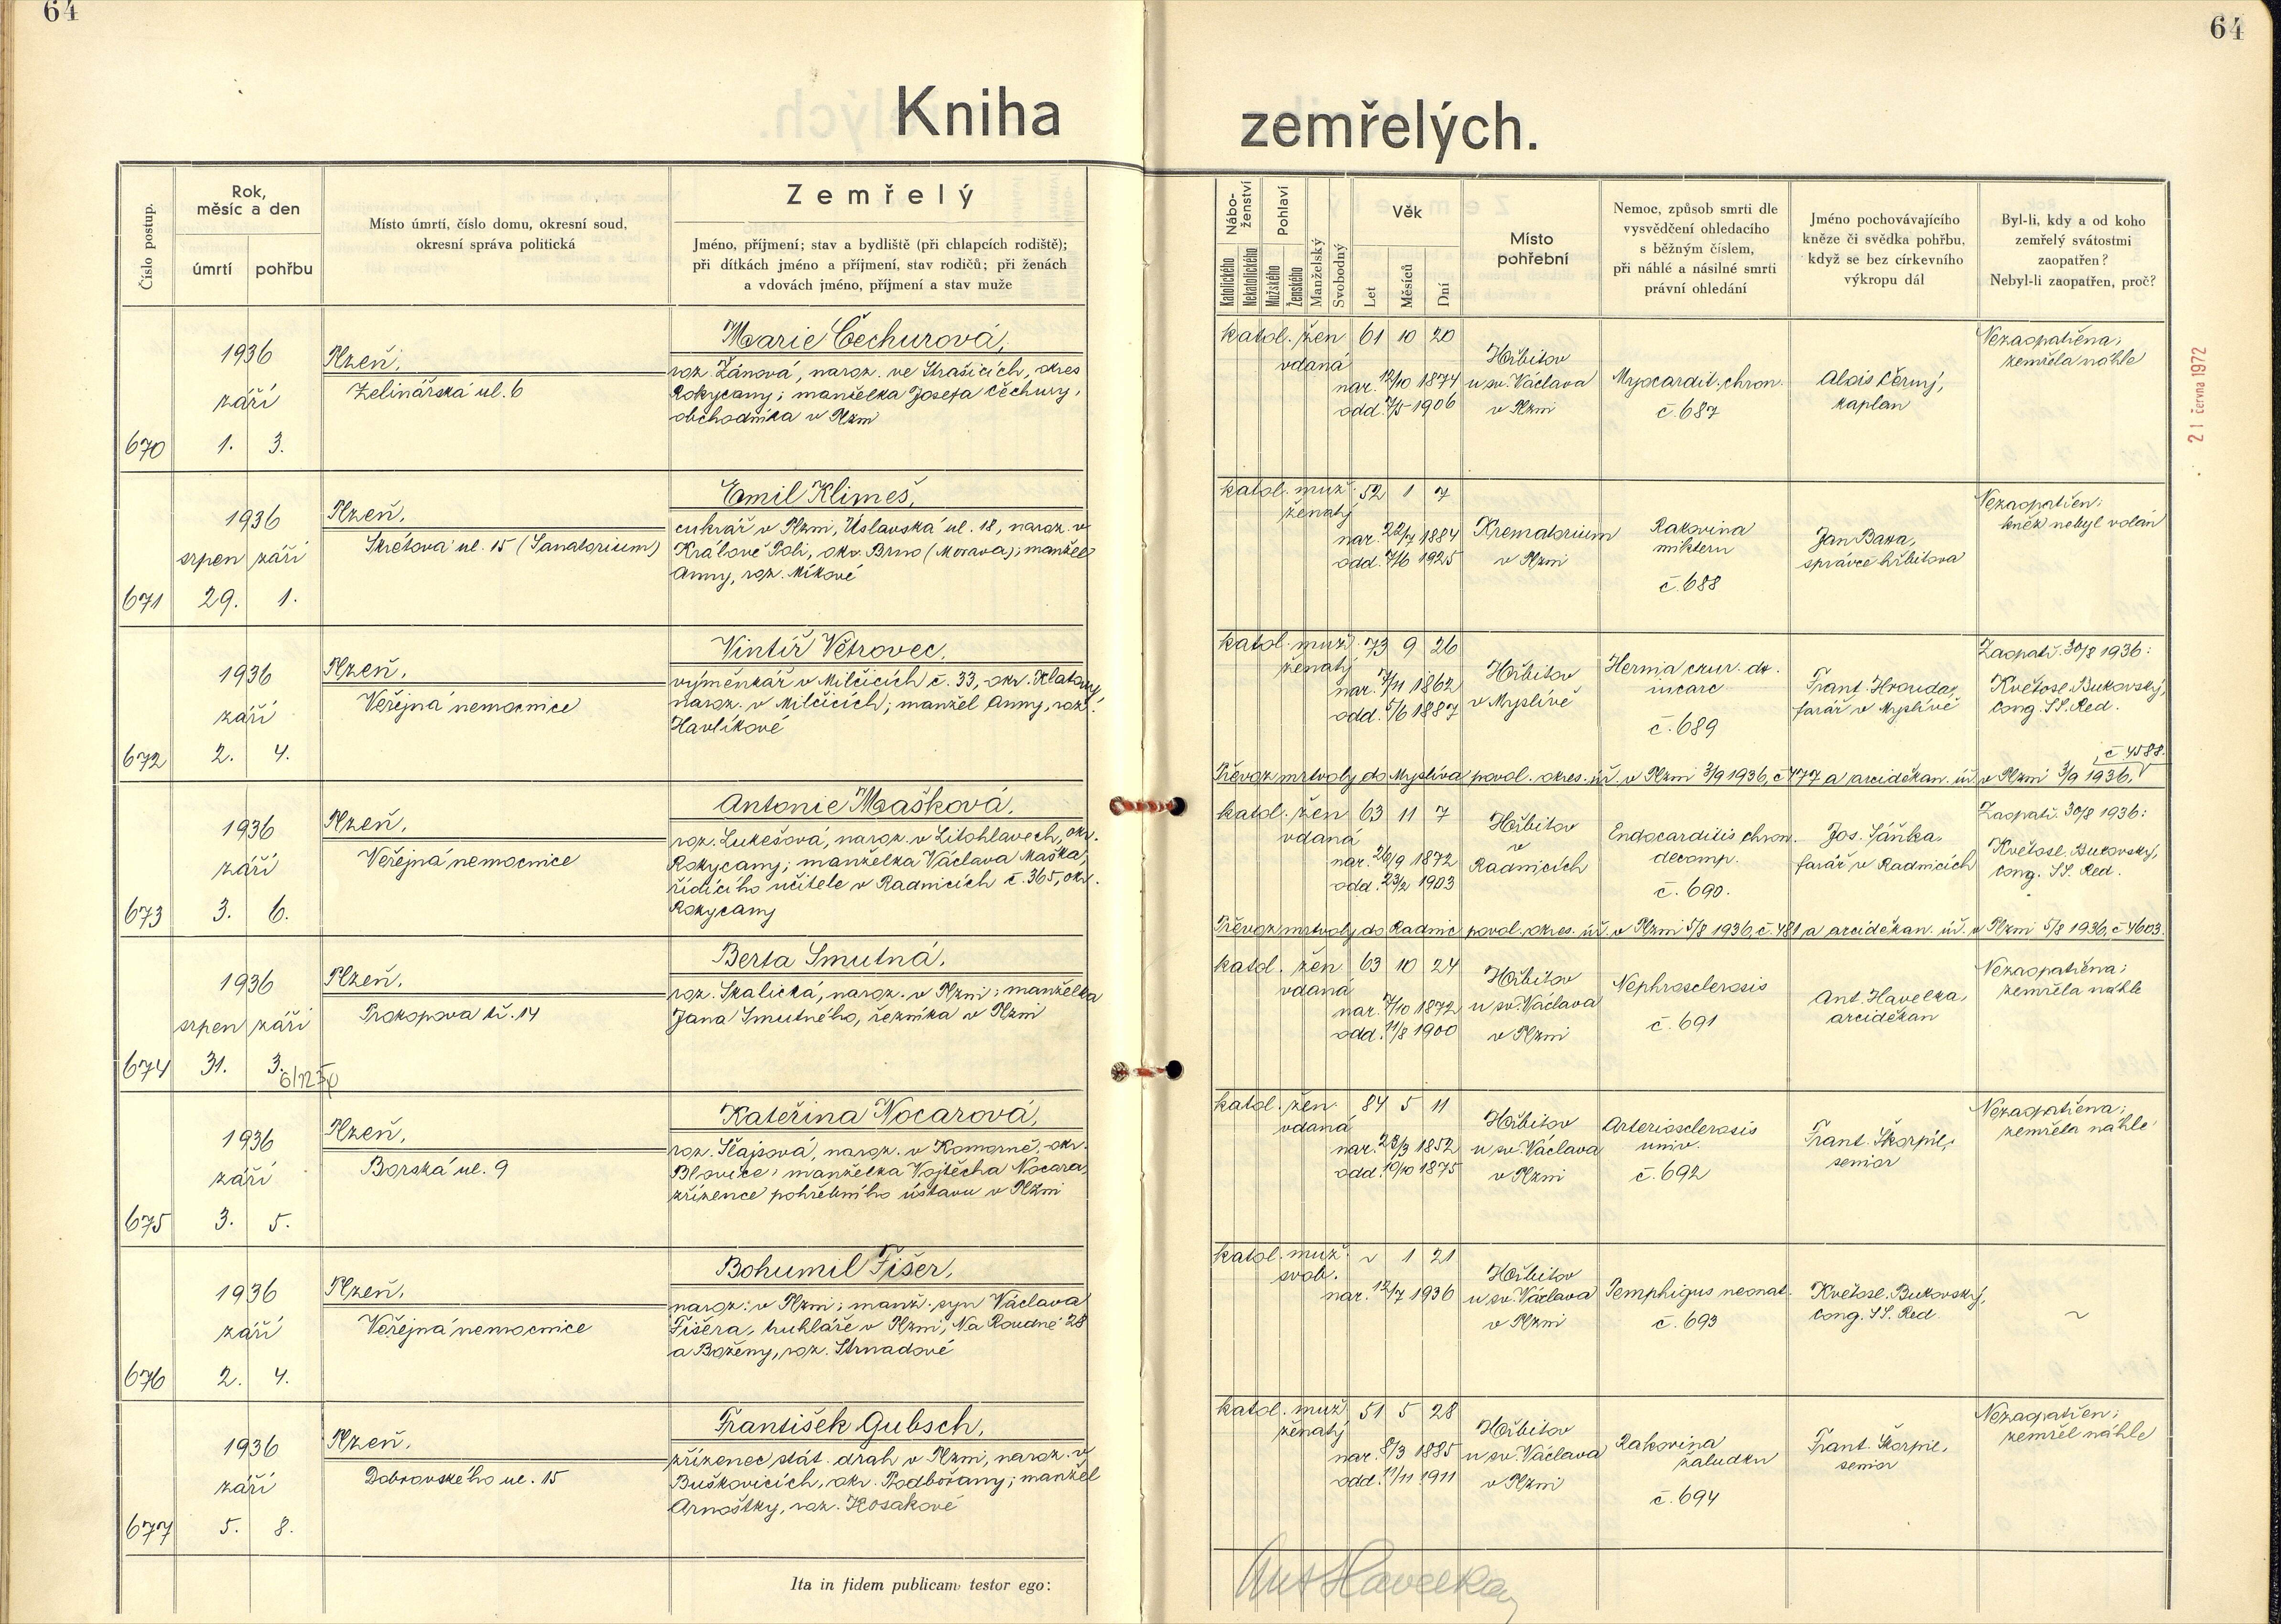 64
64
Kniha zemřelých.
Číslo postup.
Rok, měsíc a den
úmrtí
pohřbu
Místo úmrtí, číslo domu, okresní soud,
okresní správa politická
Zemřelý
Jméno, příjmení; stav a bydliště (při chlapcích rodiště);
při dítkách jméno a příjmení, stav rodičů; při ženách
a vdovách jméno, příjmení a stav muže
Nábo-
ženství
Katolického
Nekatolického
Pohlaví
Mužského
Ženského
Manželský
Svobodný
Věk
Let
Měsíců
Dní
Místo
pohřební
Nemoc, způsob smrti dle
vysvědčení ohledacího
s běžným číslem,
při náhlé a násilné smrti
právní ohledání
Jméno pochovávajícího
kněze či svědka pohřbu,
když se bez církevního
výkropu dál
Byl-li, kdy a od koho
zemřelý svátostmi
zaopatřen?
Nebyl-li zaopatřen, proč?
670
1936
září
1. 3.
Plzeň,
Zelinářská ul. 6
Marie Čechurová,
roz. Žánová, naroz. ve Strašicích, okres
Rokycany; manželka Josefa Čechury,
obchodníka v Plzni
katol. žen 61 10 20
vdaná
nar. 12/10 1874
odd. 7/5 1906
Hřbitov
u sv. Václava
v Plzni
Myocardit. chron.
č. 687
Alois Černý,
kaplan
Nezaopatřena;
zemřela náhle
21 června 1972
671
1936
srpen září
29. 1.
Plzeň,
Skrétova ul. 15 (Sanatorium)
Emil Klimeš,
cukrář v Plzni, Úslavská ul. 18, naroz. v
Králově Poli, okr. Brno (Morava); manžel
Anny, roz. Míkové
katol. muž. 52 1 7
ženatý
nar. 22/7 1884
odd. 7/6 1925
Krematorium
v Plzni
Rakovina
č. 688
Jan Bara,
správce hřbitova
Nezaopatřen;
kněz nebyl volán
672
1936
září
2. 4.
Plzeň,
Veřejná nemocnice
Vintíř Větrovec,
výměnkář v Milčicích č. 33, okr. Klatovy,
naroz. v Milčicích; manžel Anny, roz.
Havlíkové
katol. muž. 73 9 26
ženatý
nar. 7/11 1862
odd. 5/6 1887
Hřbitov
v Myslívě
Hernia crur. dx.
incarc.
č. 689
Frant. Hrouda,
farář v Myslívě
Zaopatř. 30/8 1936:
Květosl. Bukovský,
Cong. SS. Red.
č 4588.
Převoz mrtvoly do Myslíva povol. okres. úř. v Plzni 3/9 1936, č 477 a arciděkan. úř. v Plzni 3/9 1936,
673
1936
září
3. 6.
Plzeň,
Veřejná nemocnice
Antonie Mašková,
roz. Lukešová, naroz. v Litohlavech, okr.
Rokycany; manželka Václava Maška,
řídícího učitele v Radnicích č. 365, okr.
Rokycany
katol. žen 63 11 7
vdaná
nar. 26/9 1872
odd. 23/2 1903
Hřbitov
v
Radnicích
Endocarditis chron.
decomp.
č. 690.
Jos. Sáňka,
farář v Radnicích
Zaopatř. 30/8 1936:
Květosl. Bukovský,
Cong. SS. Red.
Převoz mrtvoly do Radnic povol. okres. úř. v Plzni 5/8 1936, č. 481 a arciděkan. úř. v Plzni 5/8 1936, č 4603.
674
1936
srpen září
31. 3.
Plzeň,
Prokopova tř. 14
Berta Smutná,
roz. Skalická, naroz. v Plzni; manželka
Jana Smutného, řezníka v Plzni
katol. žen 63 10 24
vdaná
nar. 7/10 1872
odd. 11/8 1900
Hřbitov
u sv. Václava
v Plzni
Nephrosclerosis
č. 691
Ant. Havelka,
arciděkan
Nezaopatřena;
zemřela náhle
675
1936
září
3. 5.
Plzeň,
Borská ul. 9
Kateřina Nocarová,
roz. Šlajsová, naroz. v Komorně, okr.
Blovice; manželka Vojtěcha Nocara,
zřízence pohřebního ústavu v Plzni
katol. žen. 84 5 11
vdaná
nar. 23/3 1852
odd. 10/10 1875
Hřbitov
u sv. Václava
v Plzni
Arteriosclerosis
univ.
č. 692
Frant. Škorpil,
senior
Nezaopatřena;
zemřela náhle
676
1936
září
2. 4.
Plzeň,
Veřejná nemocnice
Bohumil Fišer,
naroz. v Plzni; manž. syn Václava
Fišera, truhláře v Plzni, Na Roudné 28
a Boženy, roz. Strnadové
katol. muž. ~ 1 21
svob.
nar. 12/7 1936
Hřbitov
u sv. Václava
v Plzni
Pemphigus neonat.
č. 693
Květosl. Bukovský,
Cong. SS. Red.
~
677
1936
září
5. 8.
Plzeň,
Dobrovského ul. 15
František Gubsch,
zřízenec stát. drah v Plzni, naroz. v
Buškovicích, okr. Podbořany; manžel
Arnoštky, roz. Kosakové
katol. muž 51 5 28
ženatý
nar. 8/3 1885
odd. 11/11 1911
Hřbitov
u sv. Václava
v Plzni
Rakovina
žaludku
č. 694
Frant. Škorpil,
senior
Nezaopatřen;
zemřel náhle
Ita in fidem publicam testor ego:
Ant Havelka